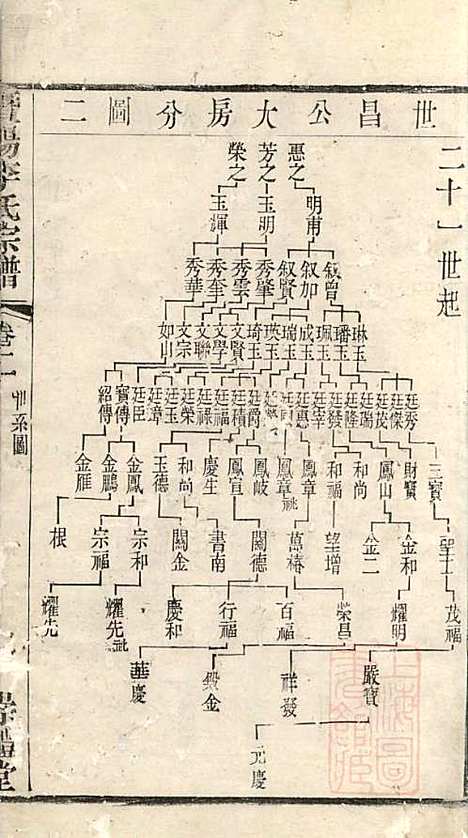 世昌公大房分圖二
二十一世起
惠之 芳之 榮之
明甫 玉明 玉輝
叙曾 叙加 叙賢 秀肇 秀雲 秀奎 秀華
琳玉 璠玉 珮玉 成玉 瑞玉 瑛玉 琦玉 文賢 文學 文聯 文宗 如山
廷秀 廷傑 廷茂 廷瑞 廷隆 廷發 廷宰 廷惠 廷爵 廷積 廷福 廷祿 廷榮 廷玉 廷璋 廷臣 寶傳 紹傳
三寶 財寶 鳳山 和尚 和福 鳳章 鳳章祧 鳳岐 鳳宣 慶生 和尚 玉德 金鳳 金鵬 金雁
聖工 金和 金二 望增 萬椿 閣德 書南 閣金 宗和 宗福 根
茂福 耀明 榮昌 百福 行福 慶和 耀先祧 耀先
嚴寶 祥發 毀金 華慶
元慶
李氏宗譜
卷二
世系圖
堂